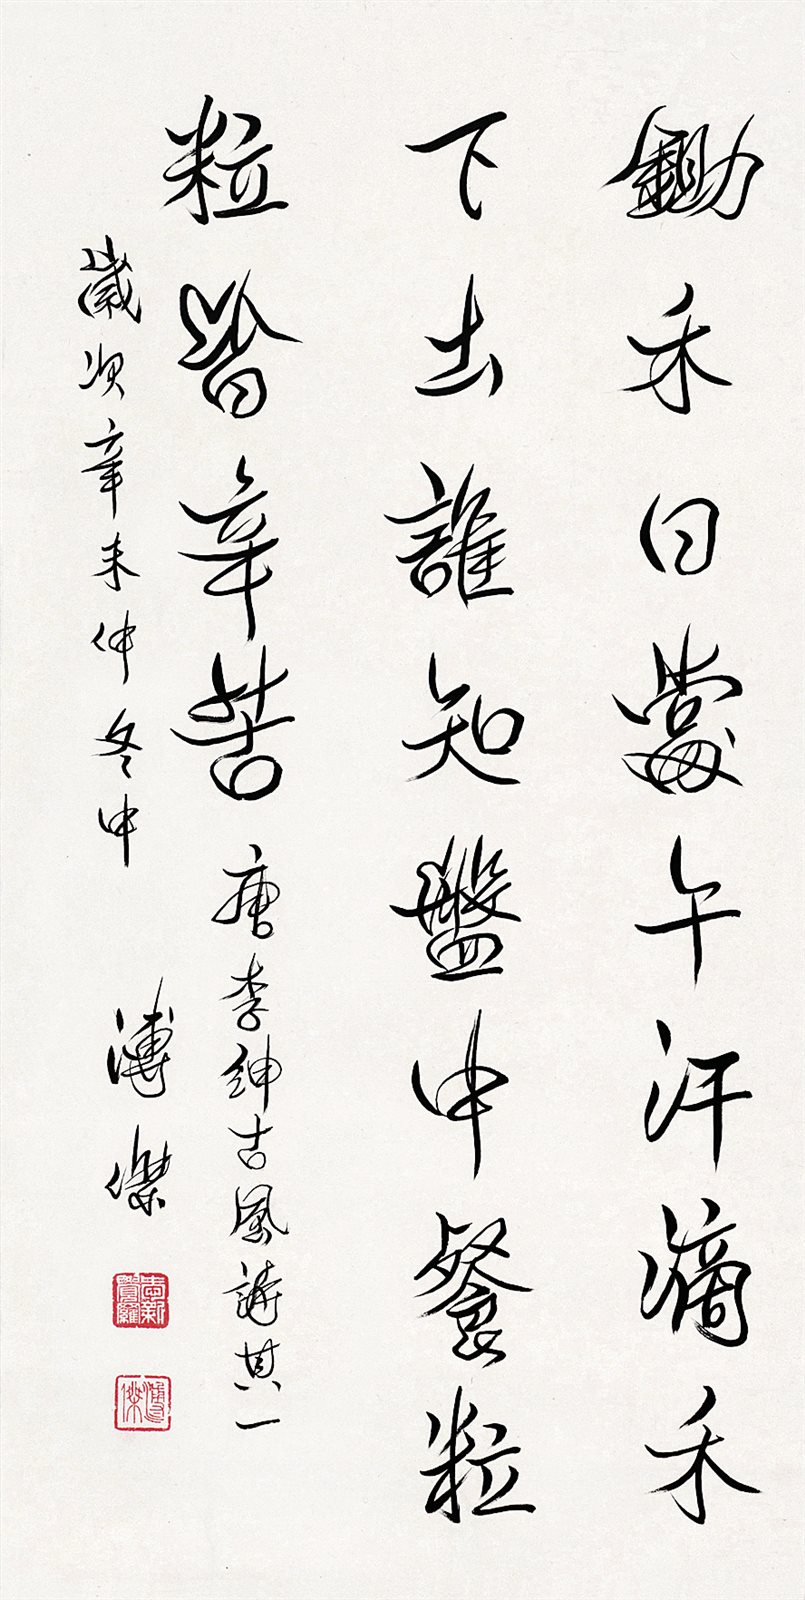 鋤禾日當午汗滴禾
下土誰知盤中餐粒
粒皆辛苦 唐李紳古風詩其一
歲次辛未仲冬中 溥傑
愛新覺羅
溥傑